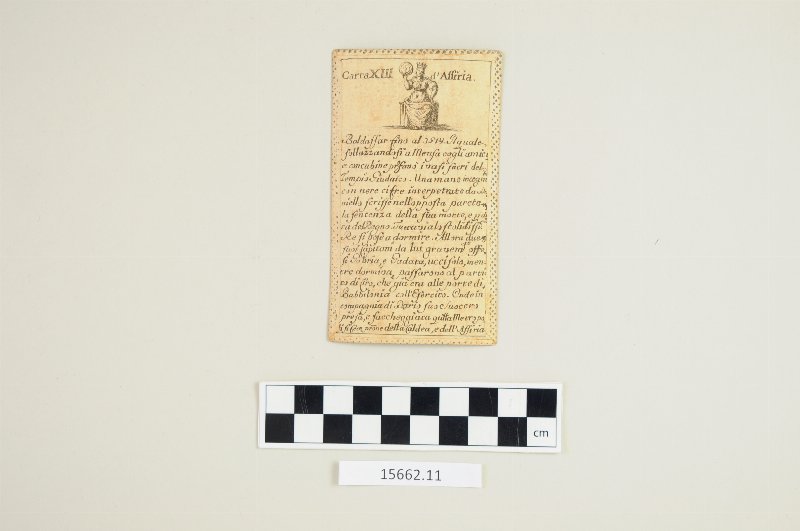 Carta XIII d'Assiria.
Baldassar fino al 3514. Il quale
sollazzandosi a Mensa cogli amici
e concubine profano i vasi sacri del
Tempio Giudaico. Una mano
con nere cifre interpretate da
niello scrisse nell'opposta parete
la sentenza della sua morte, e
ra del Regno
Re si pose a dormire. Allora due
suoi Capitani da lui gravem offe
si Gobria, e Gadata, ucciselo, men
tre dormiva, passarono al parti
to di Ciro, che già era alle porte di
Babbilonia coll'Esercito. Onde in
compagnia di Dario suo Suocero
presa, e saccheggiata
della Caldea, e dell'Assiria
cm
15662.11